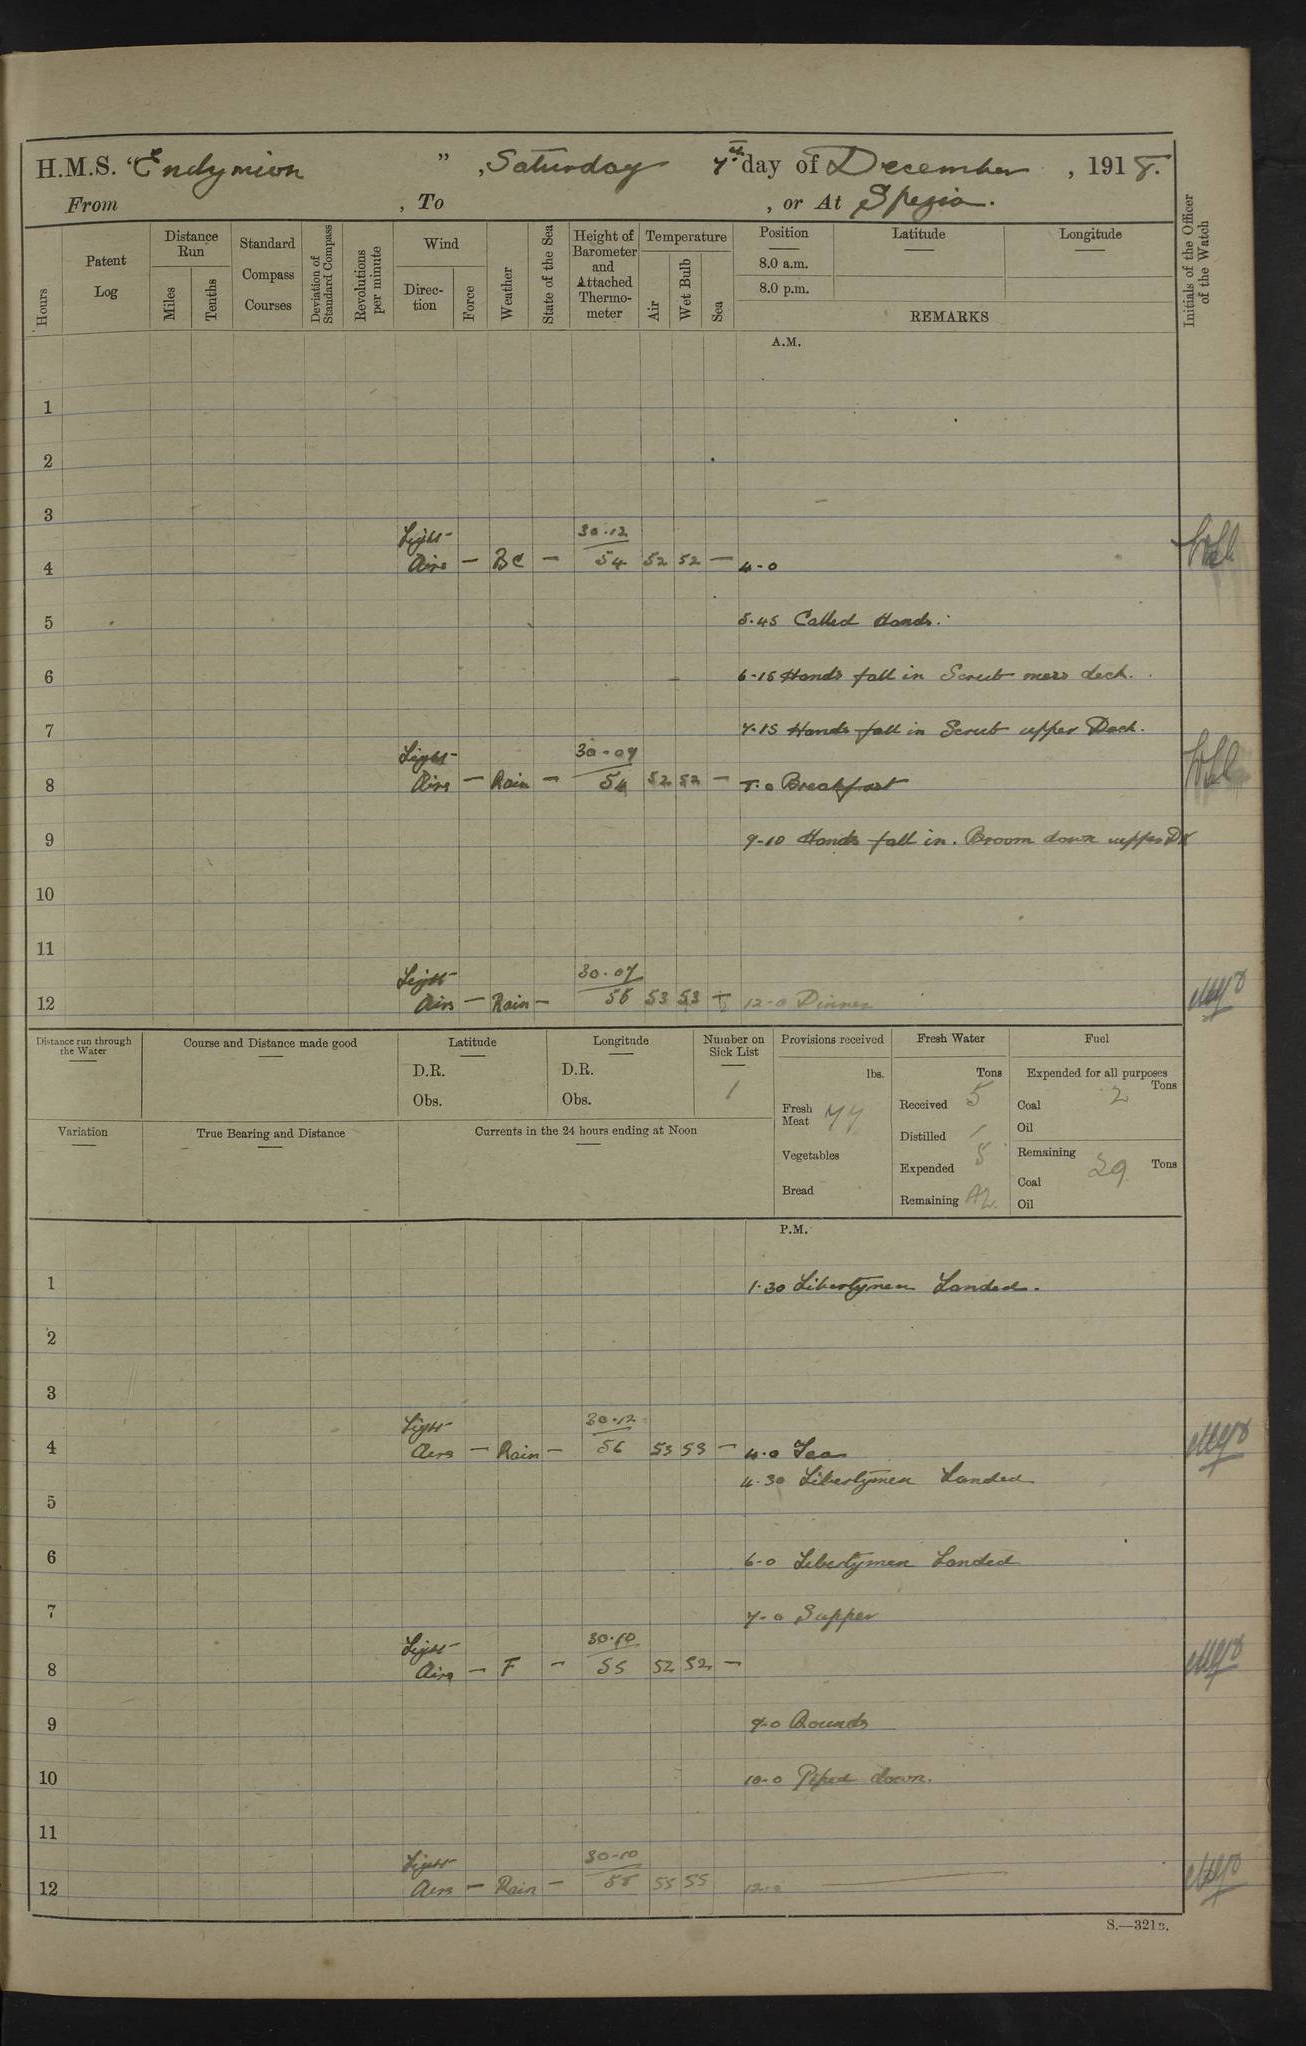 H.M.S. "Endymion", Saturday 7th day of December, 1918.
From , To , or At Spezia.
Hours
Patent Log
Distance Run
Miles
Tenths
Standard Compass Courses
Deviation of Standard Compass
Revolutions per minute
Wind
Direction
Force
Weather
State of the Sea
Height of Barometer and Attached Thermometer
Temperature
Air
Wet Bulb
Sea
Position
8.0 a.m.
8.0 p.m.
Latitude
Longitude
REMARKS
Initials of the Officer of the Watch
A.M.
1
2
3
Light 30.12
4 Airs — BC — 54 52 52 — 4-0
5 5.45 Called Hands.
6 6-15 Hands fall in Scrub mess deck.
7 7.15 Hands fall in Scrub upper Deck.
Light 30-07
8 Airs — Rain — 54 52 52 — 8.0 Breakfast
9 9-10 Hands fall in. Broom down upper Dk
10
11
Light 30.07
12 Airs — Rain — 56 53 53 — 12-0 Dinner
Distance run through the Water
Course and Distance made good
Latitude
D.R.
Obs.
Longitude
D.R.
Obs.
Number on Sick List
1
Provisions received
lbs.
Fresh Meat 77
Vegetables
Bread
Fresh Water
Tons
Received 5
Distilled /
Expended 5
Remaining 42
Fuel
Expended for all purposes
Tons
Coal 2
Oil
Remaining
Tons
Coal 29
Oil
Variation
True Bearing and Distance
Currents in the 24 hours ending at Noon
P.M.
1 1.30 Libertymen Landed.
2
3
Light 30.12
4 Airs — Rain — 56 53 53 — 4.0 Tea
4.30 Libertymen Landed
5
6 6-0 Libertymen Landed
7 7-0 Supper
Light 30.10
8 Airs — F — 55 52 52 —
9 9-0 Rounds
10 10-0 Piped down.
11
Light 30-10
12 Airs — Rain — 55 55 55 12-0
S.—321B.